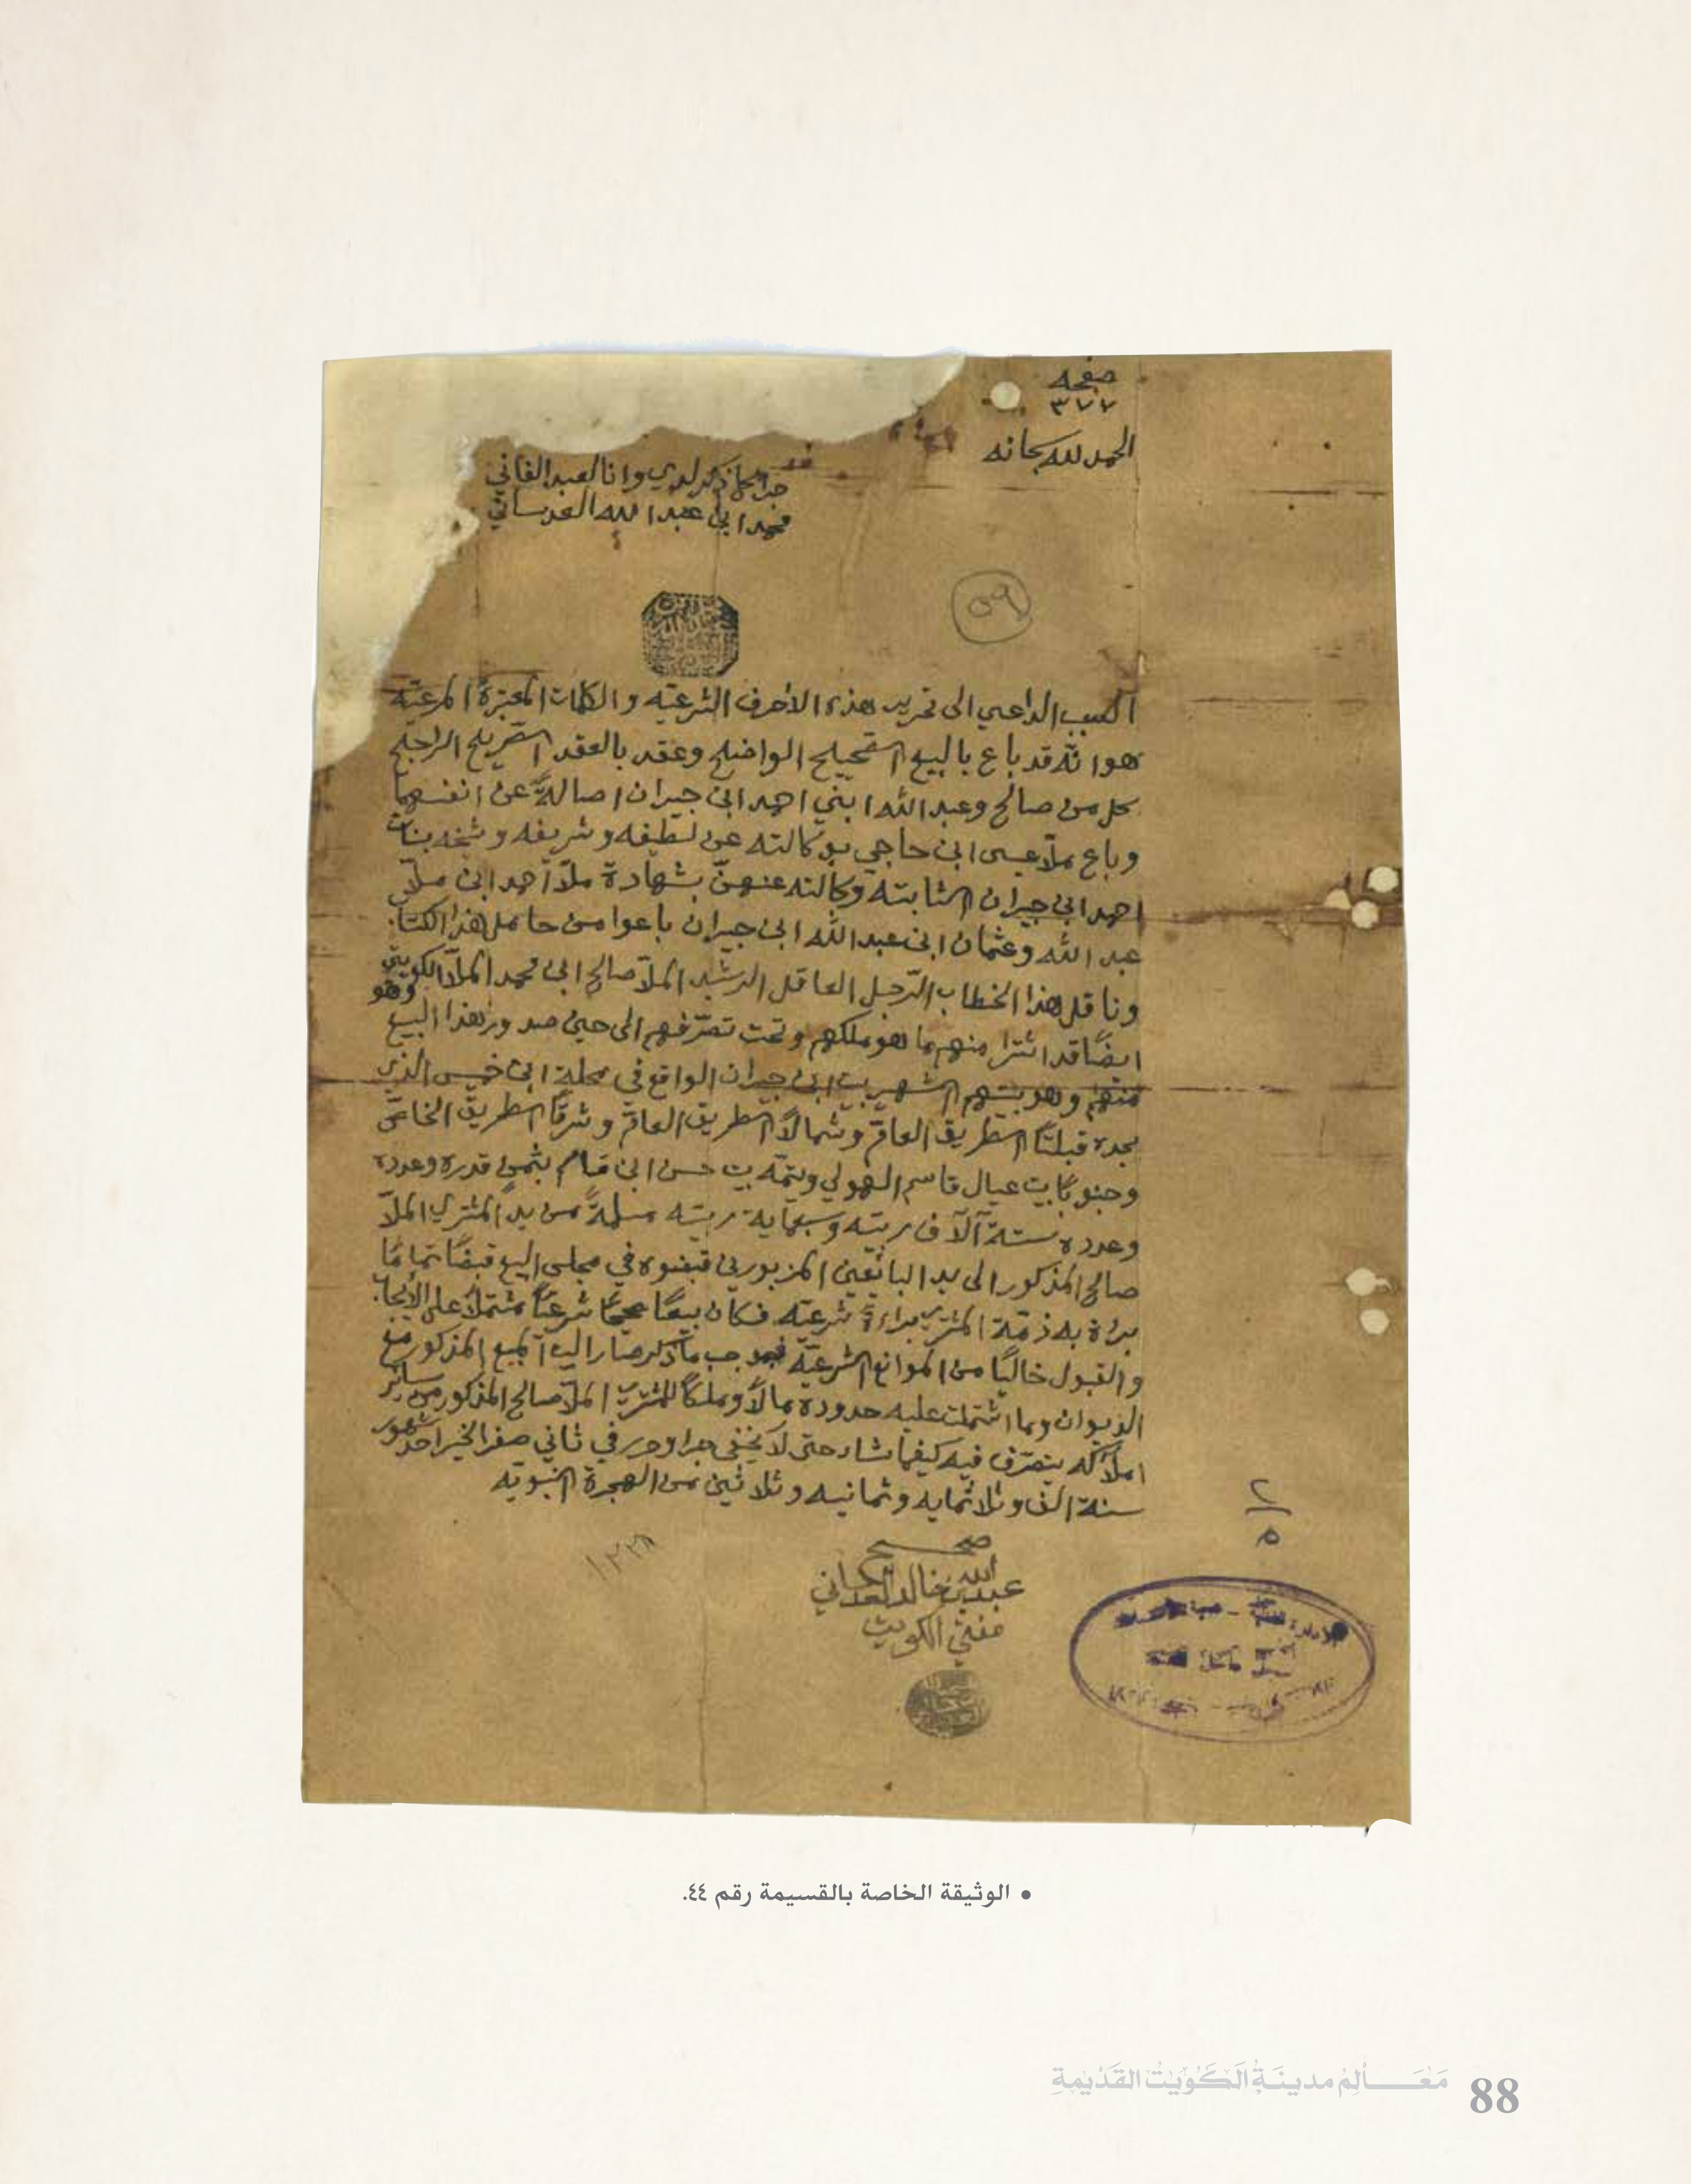 صفحه
٣٧٧
الحمد لله سبحانه
جرا ما ذكر لدي وانا العبد الفاني
محمد ابن عبد الله العدساني
٥٩
السبب الداعي الى تحرير هذه الأحرف الشرعيّه والكلمات المعتبرة المرعيّه
هو انّه قد باع بالبيع الصحيح الواضح وعقد بالعقد الصّريح الراجح
كل من صالح وعبد الله ابني احمد ابن جيران اصالةً عن انفسهما
وباع ملّا عيسى ابن حاجي بوكالته عن لطيفه وشريفه وشيخه بنات
احمد ابن جيران الثابته وكالته عنهنّ بشهادة ملّا أحمد ابن ملّا
عبد الله وعثمان ابن عبد الله ابن جيران باعوا من حامل هذا الكتاب
وناقل هذا الخطاب الرّجل العاقل الرشيد الملّا صالح ابن محمد الملّا الكويتي وهو
ايضًا قد اشترا منهم ما هو ملكهم وتحت تصرّفهم الى حين صدور هذا البيع
منهم وهو بيتهم الشهير بيت ابن جيران الواقع في محلة ابن خميس الذي
يحده قبلتًا الطريق العامّ وشمالًا الطريق العامّ وشرقًا الطريق الخاصّ
وجنوبًا بيت عيال قاسم الهولي ويتمّه بيت حسن ابن قسام بثمنٍ قدره وعدده
وعدده ستة آلآف ربيّه وسبعماية ربيّه مسلمةً من يد المشتري الملّا
صالح المذكور الى يد البائعين المزبورين قبضوه في مجلس البيع قبضًا تمامًا
براة به ذمّة المشتري براءةً شرعيّه فكان بيعًا صحيحًا شرعيًّا مشتملًا على الأيجاب
والقبول خاليًا من الموانع الشرعيّه فبموجب ما ذكر صار البيت المبيع المذكور مع
الديوان وما اشتملت عليه حدوده مالًا وملكًا للمشتري الملّا صالح المذكور من سائر
املاكه يتصرّف فيه كيفما شاء حتى لا يخفى جرا وحرر في ثاني صفر الخير احد شهور
سنة الف وثلاثمايه وثمانيه وثلاثين من الهجرة النبويّه
١٣٣٨
صحيح
عبد الله بن خالد العدساني
مفتي الكويت
٢
٥
• الوثيقة الخاصة بالقسيمة رقم ٤٤.
مَعَـــالِمُ مدينَـةِ الكُوَيْتُ القَدِيْمَةِ 88